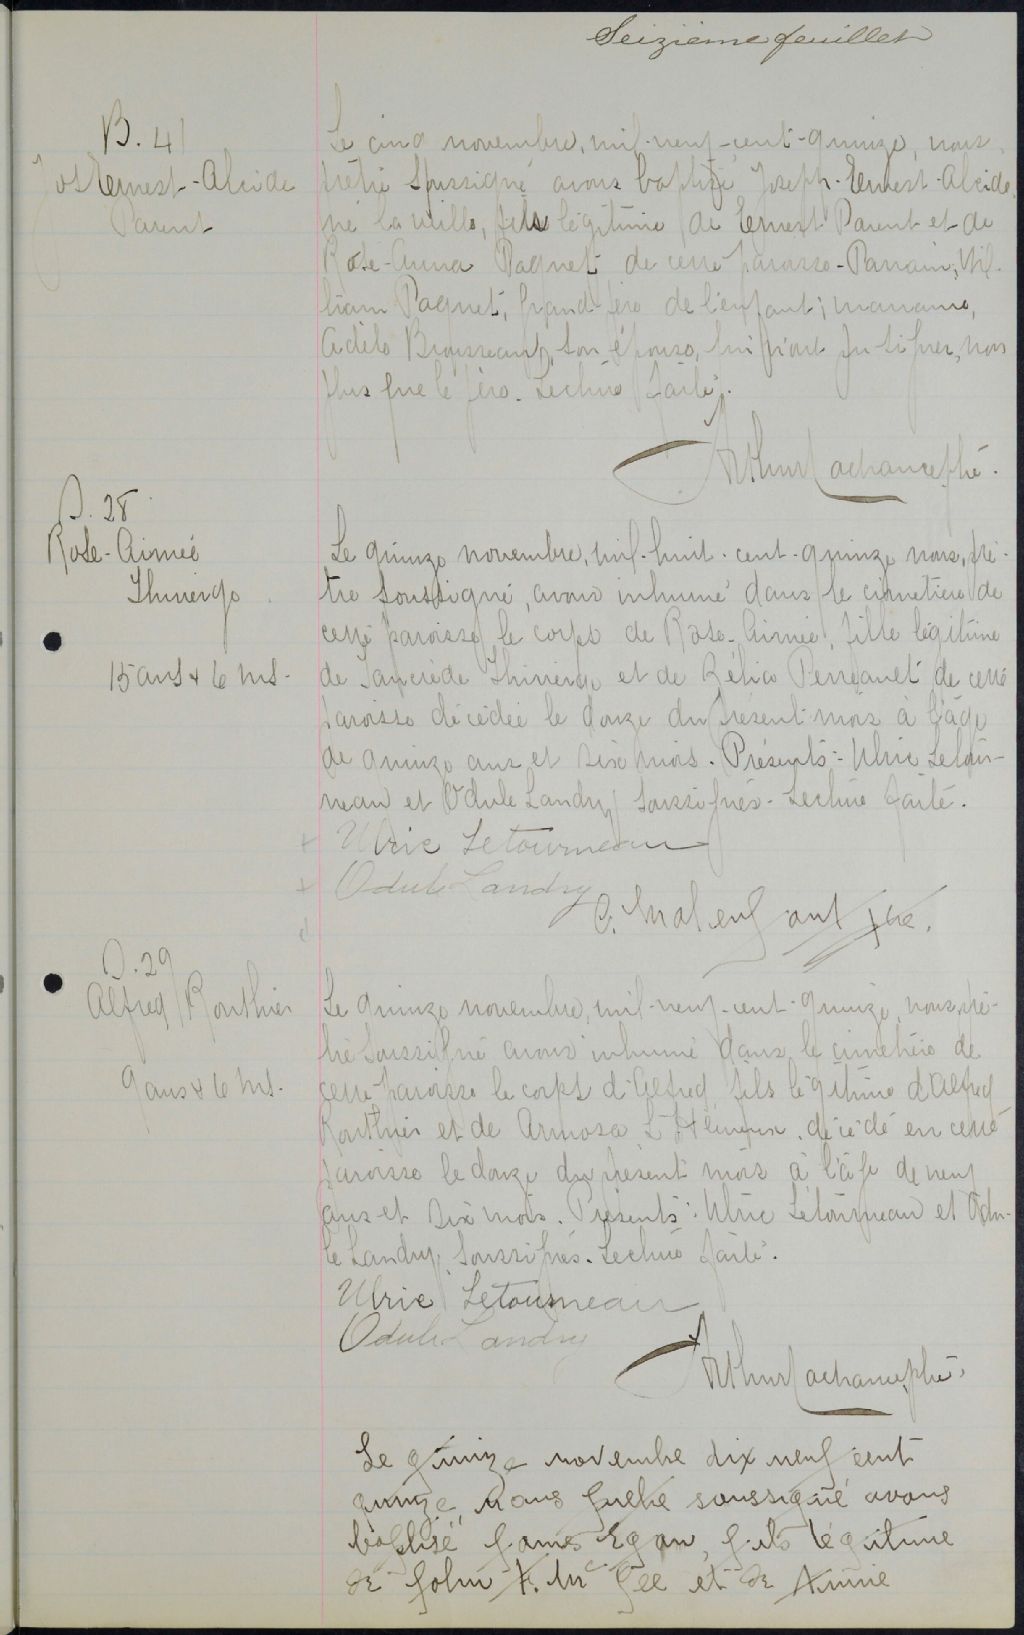 Seizième feuillet
B. 41
Jos Ernest-Alcide
Parent
Le cinq novembre, mil-neuf-cent-quinze, nous,
prêtre soussigné avons baptisé Joseph-Ernest-Alcide,
né la veille, fils légitime de Ernest Parent et de
Rose-Anna Paquet de cette paroisse - Parrain, Wil-
liam Paquet, grand-père de l'enfant; marraine,
Adèle Brousseau, son épouse, qui n'ont pu signer, non
plus que le père. Lecture faite.
Arthur Lachance ptre.
S. 28
Rose-Aimée
Thivierge
15 ans & 6 ms.
Le quinze novembre, mil-huit-cent-quinze nous, prê-
tre soussigné, avons inhumé dans le cimetière de
cette paroisse le corps de Rose-Aimée, fille légitime
de Tancrède Thivierge et de Zélica Perreault de cette
paroisse décédée le douze du présent mois à l'âge
de quinze ans et six mois. Présents: Ulric Letour-
neau et Odule Landry soussignés - Lecture faite.
Ulric Letourneau
Odule Landry
C. Malenfant ptre.
S. 29
Alfred Routhier
9 ans & 6 ms.
Le quinze novembre, mil-neuf-cent-quinze, nous, prê-
tre soussigné avons inhumé dans le cimetière de
cette paroisse le corps d'Alfred, fils légitime d'Alfred
Routhier et de Armosa L'Heureux, décédé en cette
paroisse le douze du présent mois à l'âge de neuf
ans et six mois. Présents: Ulric Létourneau et Odu-
le Landry, soussignés. Lecture faite.
Ulric Letourneau
Odule Landry
Arthur Lachance ptre.
Le quinze novembre dix neuf cent
quinze, nous prêtre soussigné avons
baptisé James Egan, fils légitime
de John F. McGee et de Annie